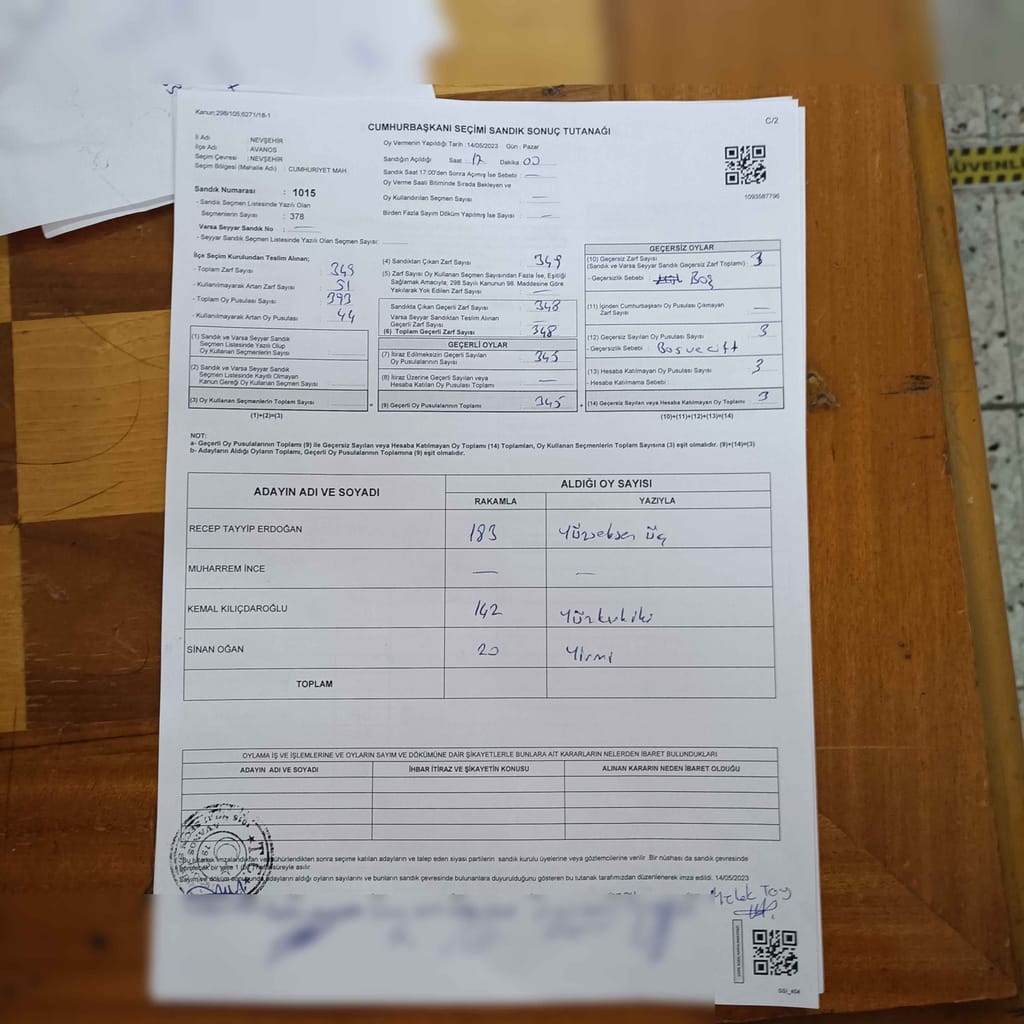 Kanun:298/105,6271/18-1
C/2
CUMHURBAŞKANI SEÇİMİ SANDIK SONUÇ TUTANAĞI
İl Adı : NEVŞEHİR
İlçe Adı : AVANOS
Seçim Çevresi : NEVŞEHİR
Seçim Bölgesi (Mahalle Adı) : CUMHURİYET MAH
Sandık Numarası : 1015
- Sandık Seçmen Listesinde Yazılı Olan
Seçmenlerin Sayısı : 378
Varsa Seyyar Sandık No :
- Seyyar Sandık Seçmen Listesinde Yazılı Olan Seçmen Sayısı:
Oy Vermenin Yapıldığı Tarih :14/05/2023 Gün : Pazar
Sandığın Açıldığı Saat 17 Dakika 00
Sandık Saat 17:00'den Sonra Açımış İse Sebebi : —
Oy Verme Saati Bitiminde Sırada Bekleyen ve
Oy Kullandırılan Seçmen Sayısı —
Birden Fazla Sayım Döküm Yapılmış İse Sayısı : —
1093587796
İlçe Seçim Kurulundan Teslim Alınan;
- Toplam Zarf Sayısı : 349
- Kullanılmayarak Artan Zarf Sayısı : 51
- Toplam Oy Pusulası Sayısı : 393
- Kullanılmayarak Artan Oy Pusulası : 44
(1) Sandık ve Varsa Seyyar Sandık
Seçmen Listesinde Yazılı Olup
Oy Kullanan Seçmenlerin Sayısı
(2) Sandık ve Varsa Seyyar Sandık
Seçmen Listesinde Kayıtlı Olmayan
Kanun Gereği Oy Kullanan Seçmen Sayısı
(3) Oy Kullanan Seçmenlerin Toplam Sayısı
(1)+(2)=(3)
(4) Sandıktan Çıkan Zarf Sayısı : 349
(5) Zarf Sayısı Oy Kullanan Seçmen Sayısından Fazla İse, Eşitliği
Sağlamak Amacıyla; 298 Sayılı Kanunun 98. Maddesine Göre
Yakılarak Yok Edilen Zarf Sayısı —
Sandıkta Çıkan Geçerli Zarf Sayısı : 348
Varsa Seyyar Sandıktan Teslim Alınan
Geçerli Zarf Sayısı —
(6) Toplam Geçerli Zarf Sayısı : 348
GEÇERLİ OYLAR
(7) İtiraz Edilmeksizin Geçerli Sayılan
Oy Pusulalarının Sayısı : 345
(8) İtiraz Üzerine Geçerli Sayılan veya
Hesaba Katılan Oy Pusulası Toplamı : —
(9) Geçerli Oy Pusulalarının Toplamı : 345
GEÇERSİZ OYLAR
(10) Geçersiz Zarf Sayısı
(Sandık ve Varsa Seyyar Sandık Geçersiz Zarf Toplamı) : 3
- Geçersizlik Sebebi : Boş
(11) İçinden Cumhurbaşkanı Oy Pusulası Çıkmayan
Zarf Sayısı —
(12) Geçersiz Sayılan Oy Pusulası Sayısı 3
- Geçersizlik Sebebi : Boş ve çift
(13) Hesaba Katılmayan Oy Pusulası Sayısı : 3
- Hesaba Katılmama Sebebi :
(14) Geçersiz Sayılan veya Hesaba Katılmayan Oy Toplamı : 3
(10)+(11)+(12)+(13)=(14)
NOT:
a- Geçerli Oy Pusulalarının Toplamı (9) ile Geçersiz Sayılan veya Hesaba Katılmayan Oy Toplamı (14) Toplamları, Oy Kullanan Seçmenlerin Toplam Sayısına (3) eşit olmalıdır. (9)+(14)=(3)
b- Adayların Aldığı Oyların Toplamı, Geçerli Oy Pusulalarının Toplamına (9) eşit olmalıdır.
ADAYIN ADI VE SOYADI
ALDIĞI OY SAYISI
RAKAMLA YAZIYLA
RECEP TAYYİP ERDOĞAN 183 Yüzseksen üç
MUHARREM İNCE — —
KEMAL KILIÇDAROĞLU 142 Yüzkırkiki
SİNAN OĞAN 20 Yirmi
TOPLAM
OYLAMA İŞ VE İŞLEMLERİNE VE OYLARIN SAYIM VE DÖKÜMÜNE DAİR ŞİKAYETLERLE BUNLARA AİT KARARLARIN NELERDEN İBARET BULUNDUKLARI
ADAYIN ADI VE SOYADI İHBAR İTİRAZ VE ŞİKAYETİN KONUSU ALINAN KARARIN NEDEN İBARET OLDUĞU
Bu tutanak imzalandıktan ve mühürlendikten sonra seçime katılan adayların ve talep eden siyasi partilerin sandık kurulu üyelerine veya gözlemcilerine verilir .Bir nüshası da sandık çevresinde
süreyle asılır.
Sayım ve döküm sonucunda adayların aldığı oyların sayılarını ve bunların sandık çevresinde bulunanlara duyurulduğunu gösteren bu tutanak tarafımızdan düzenlenerek imza edildi. 14/05/2023
Melek
GÜVENLİ